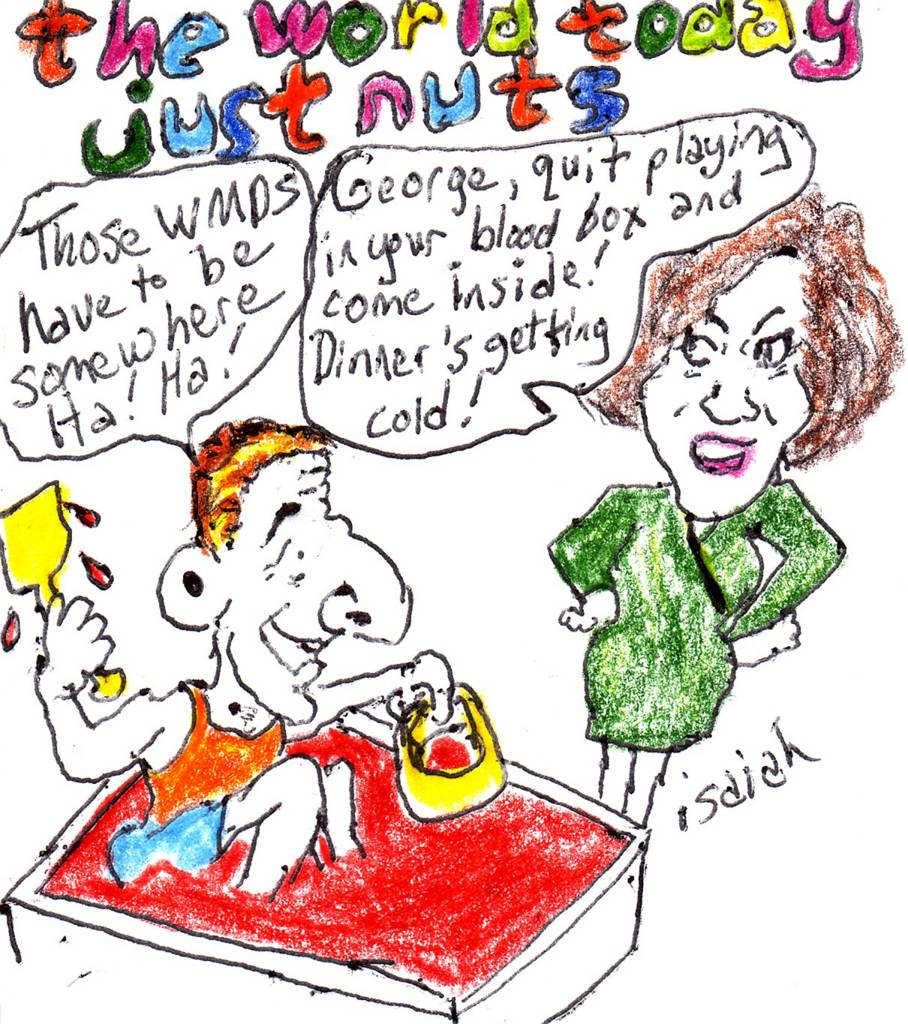 the world today
just nuts
Those WMDS
have to be
somewhere
Ha! Ha!
George, quit playing
in your blood box and
come inside!
Dinner's getting
cold!
isaiah